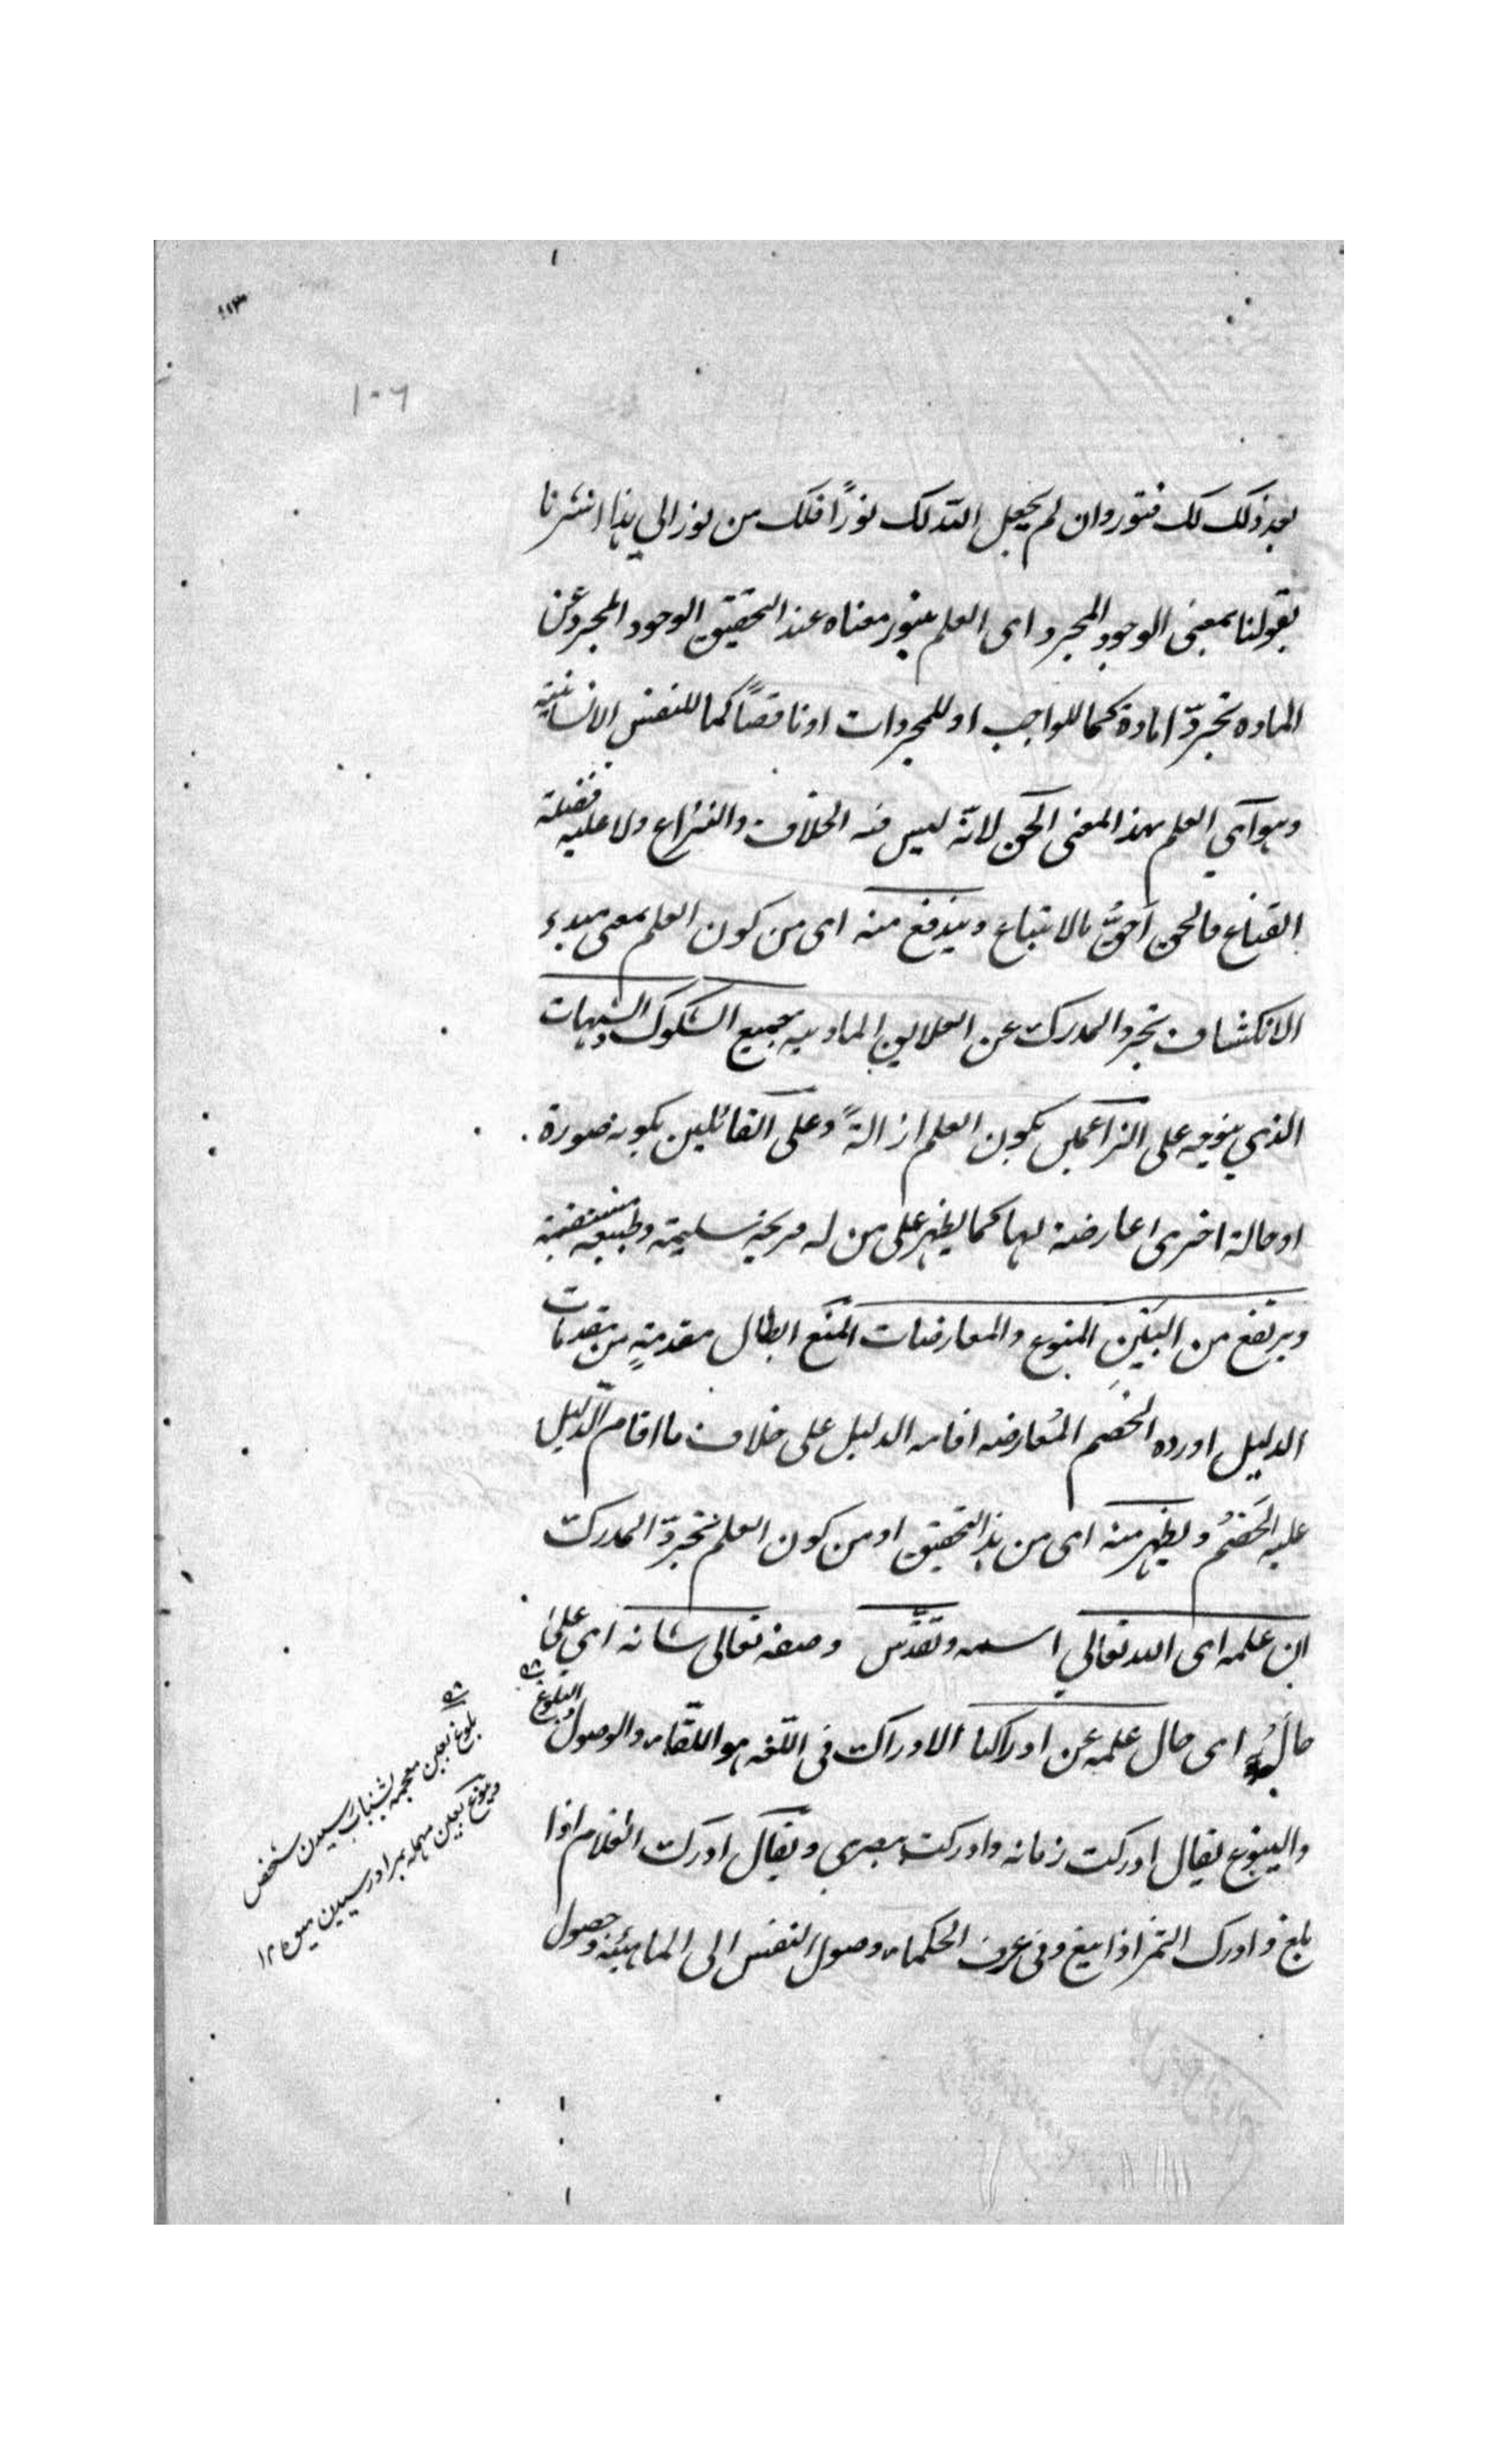 ١٠٦
بعد ذلك لك فتور وان لم يجعل الله لك نورًا فلك من نور الى هذا اشرنا
بقولنا بمعنى الوجود المجرد اى العلم معناه عند التحقيق الوجود المجرد عن
الماده تجردّا كما للواجب او للمجردات او ناقصاً كما للنفس الانسانية
وهو اي العلم بهذا المعنى الحق لانّه ليس فيه الخلاف والنزاع ولا عليه
القناع فالحق احقُّ بالاتباع ويندفع منه اى من كون العلم بمعنى مبدء
الانكشاف تجرد المدرك عن العلايق الماديه جميع الشكوك والشبهات
الذي يتوجه على الزاعمين بكون العلم ازالةً وعلى القائلين بكونه صورة
او حالة اخرى عارضة لها كما يظهر على من له قريحة سليمة وطبيعه مستقيمة
ويرتفع من البَين المنوع والمعارضات المَنع ابطال مقدمةٍ من مقدمات
الدليل اورده الخصم المُعارضه اقامه الدليل على خلاف ما اقام الدّليل
عليه الخَصمُ ويظهر منه اى من هذا التحقيق او من كون العلم تجردّ المدرك
ان علمه اى الله تعالي اسمه وتقدّس وصفه تعالى شانه اي على
حالُه اى حال علمه عن ادراكنا الادراك فى اللّغه هو اللّقاء والوصول والبلوغ
والينوع يقال ادركت زمانه وادركت ببصري ويقال ادرك الغلام اذا
بلغ وادرك الثمر اذا ينع وفى عرف الحكماء وصول النفس الى الماهيّة وحصول
بلوغ بغين معجمه بشباب رسيدن شخص
وينوع بعين مهمله بمراد رسيدن ميوه ١٢